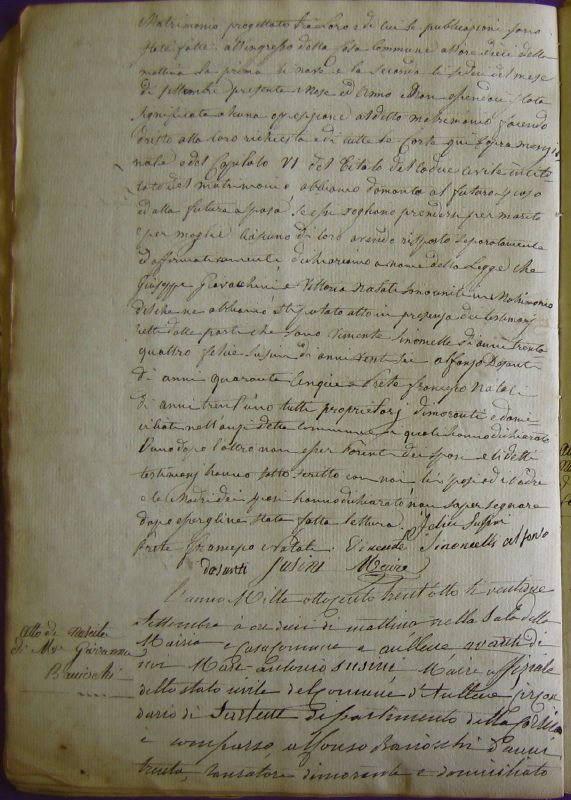 Matrimonio progettato fra loro e di cui le publicazioni sono
state fatte all'ingresso della casa Commune all'ore dieci della
mattina la prima li nove e la seconda li sedici del mese
di settembre presente mese ed Anno e Non essendoci stata
significata alcuna oppesizione al detto matrimonio facendo
dritto alla loro richiesta e di tutte le Carte qui sopra menzio
nate e del Capitolo VI del Titolo del Codice civile intito
lato del matrimonio abbiamo domanto al futuro sposo
ed alla futura sposa se essi vogliono prendersi per marito
e per moglie ciascuno di loro avendo risposto separatamente
ed affermativamente dichiariamo a nome della Legge che
Giuseppe Giovacchini e Vittoria Natali sono uniti in Matrimonio
di che ne abbiamo stipulato atto in presenza dei testimonj
detti dalle parti che sono Vincente Simonelli di anni trenta
quattro Felice Susini di anni vent sei Alfonzo Desanti
di anni quaranta Cinque e Prete Francesco Natali
di anni trent'uno tutti proprietarj dimoranti e domi
ciliati nell'anzi detta Commune i quali hanno dichiarato
l'uno dopo l'altro non esser Parenti dei sposi e li detti
testimonj hanno sotto scritto con noi li sposi ed il Padre
e le Madri dei sposi hanno dichiarato non saper segnare
dopo essergliene stata fatta lettura. Felice Susini
Prete Francesco Natali Vincente Simonelli Alfonso
desanti Susini Maire
L'anno Mille ottocento trent'otto li venticinque
Settembre a ore dieci di mattina nella Sala della
Mairia e Casa Comune a Aullene avanti di
noi Marc Antonio Susini Maire uffiziale
dello stato civile del Comune d'Aullene circon
dario di Sartene dipartimento della Corsica
è comparso Alfonso Bariocchi d'anni
trenta lavoratore dimorante e domiciliato
Atto di Nascita
di Ma Giovanna
Bariocchi